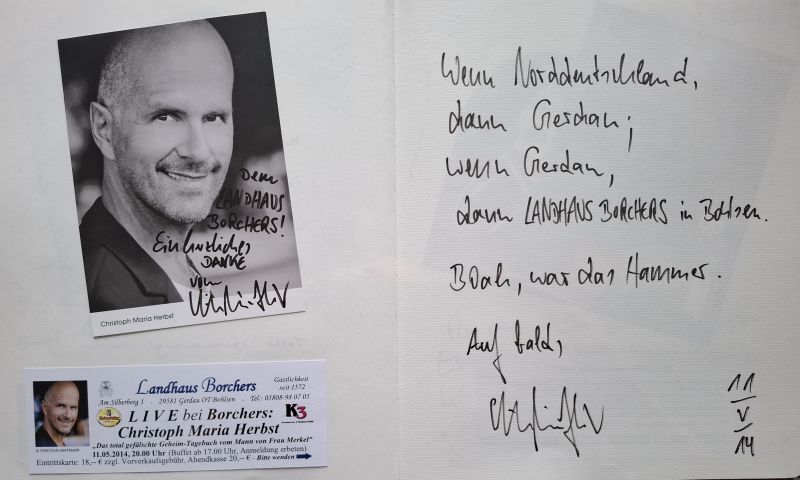 Dem
LANDHAUS
BORCHERS!
Ein herzliches
DANKE
vom
Christoph Maria Herbst
Landhaus Borchers
Gastlichkeit
seit 1572
Am Silberberg 1 - 29581 Gerdau OT/Bohlsen - Tel.: 05808-98 07 05
LIVE bei Borchers:
K3
Christoph Maria Herbst
„Das total gefälschte Geheim-Tagebuch vom Mann von Frau Merkel“
11.05.2014, 20.00 Uhr (Buffet ab 17.00 Uhr, Anmeldung erbeten)
Eintrittskarte: 18,– € zzgl. Vorverkaufsgebühr, Abendkasse 20,– € - Bitte wenden
© CHRISTIAN HARTMANN
Wenn Norddeutschland,
dann Gerdau;
wenn Gerdau,
dann LANDHAUS BORCHERS in Bohlsen.
BOah, war das Hammer.
Auf bald,
11
V
14